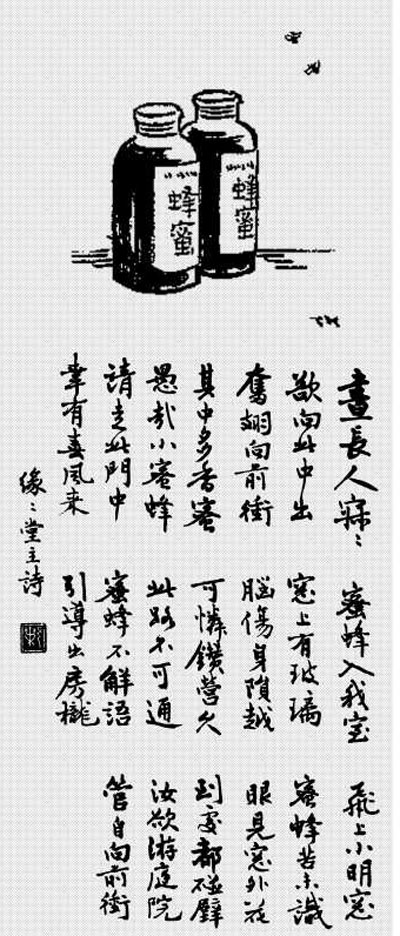 蜂蜜
蜂蜜
晝長人寂〻 蜜蜂入我室 飛上小明窓
欲向此中出 窓上有玻璃 蜜蜂苦未識
奮翮向前衝 腦傷身隕越 眼見窓外花
其中多香蜜 可憐鑽營久 到處都碰壁
愚哉小蜜蜂 此路不可通 汝欲游庭院
請走此門中 蜜蜂不解語 管自向前衝
幸有春風来 引導出房櫳
緣〻堂主詩